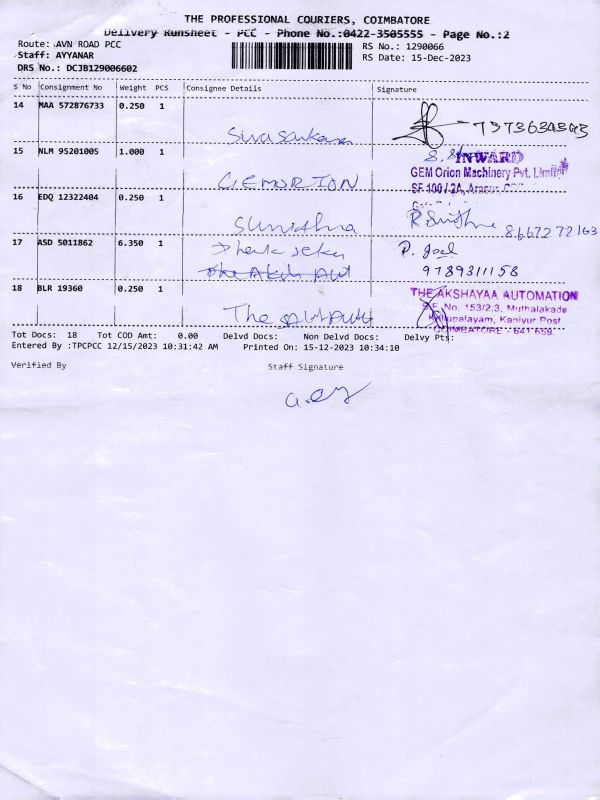 THE PROFESSIONAL COURIERS, COIMBATORE
Delivery Runsheet - PCC - Phone No.:0422-3505555 - Page No.:2
Route: AVN ROAD PCC
RS No.: 1290066
Staff: AYYANAR
RS Date: 15-Dec-2023
DRS No.: DCJB129006602
S No Consignment No Weight PCS Consignee Details Signature
14 MAA 572876733 0.250 1
Sivasankara
15 NLM 95201005 1.000 1
INWARD
GEM Orion Machinery Pvt. Limited
GEMORION
SF 100 / 2A,
16 EDQ 12322404 0.250 1
Sunithra
86672 72163
17 ASD 5011862 6.350 1
P. Joel
9789311158
18 BLR 19360 0.250 1
THE AKSHAYAA AUTOMATION
No. 153/2,3, Muthalakade
The
Kaniyur Post
COIMBATORE - 641 659.
Tot Docs: 18 Tot COD Amt: 0.00 Delvd Docs: Non Delvd Docs: Delvy Pts:
Entered By :TPCPCC 12/15/2023 10:31:42 AM Printed On: 15-12-2023 10:34:10
Verified By Staff Signature